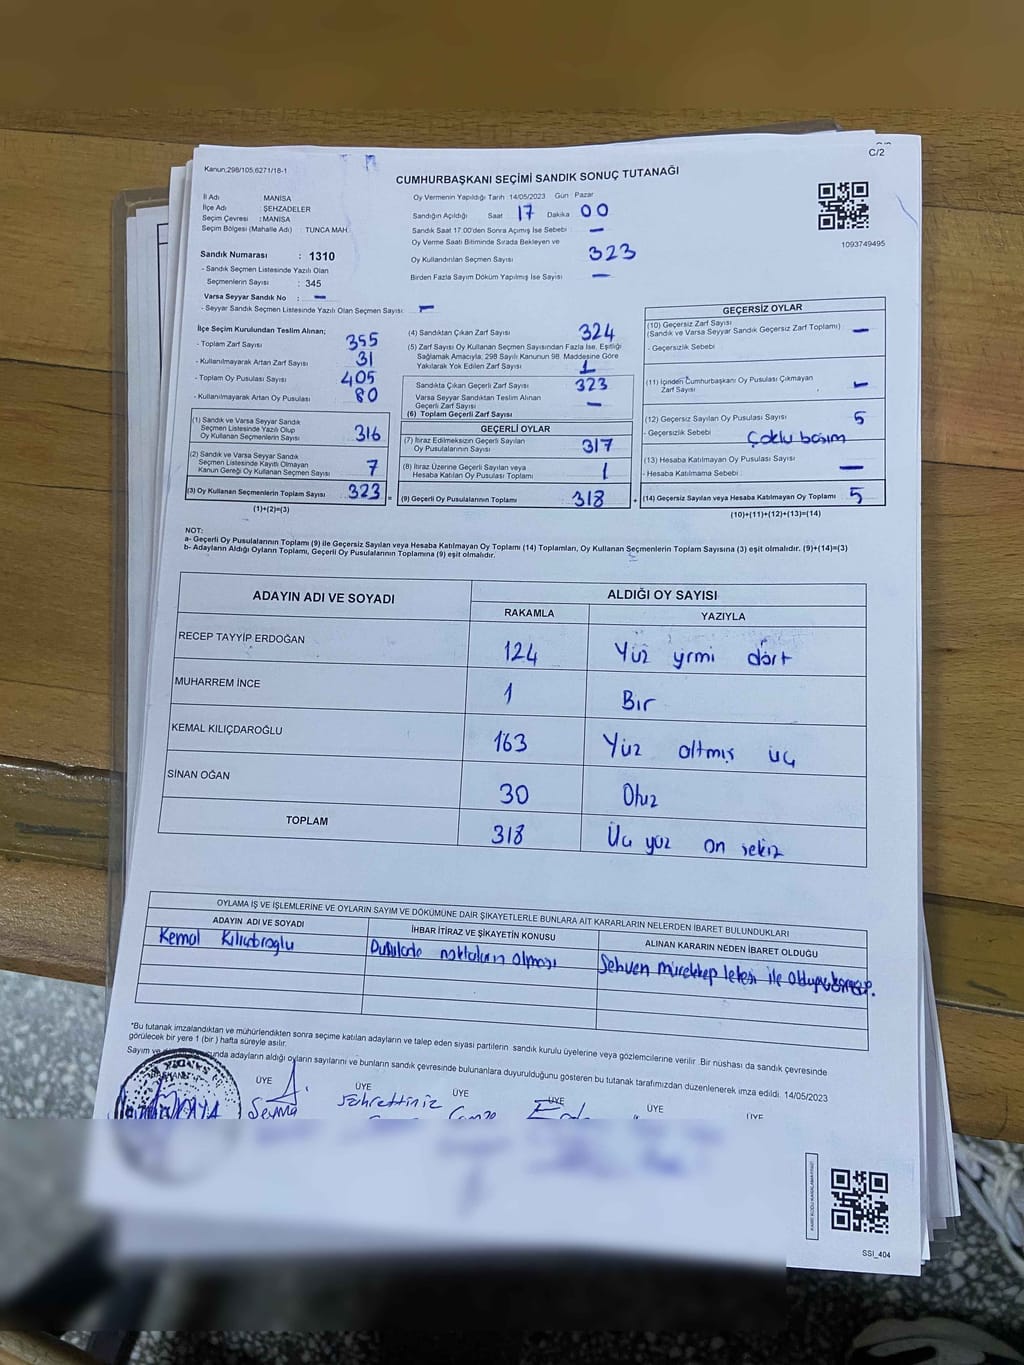 C/2
Kanun;298/105,6271/18-1
CUMHURBAŞKANI SEÇİMİ SANDIK SONUÇ TUTANAĞI
İl Adı : MANİSA
İlçe Adı : ŞEHZADELER
Seçim Çevresi : MANİSA
Seçim Bölgesi (Mahalle Adı) : TUNCA MAH.
Sandık Numarası : 1310
- Sandık Seçmen Listesinde Yazılı Olan
Seçmenlerin Sayısı : 345
Varsa Seyyar Sandık No : –
- Seyyar Sandık Seçmen Listesinde Yazılı Olan Seçmen Sayısı : –
Oy Vermenin Yapıldığı Tarih 14/05/2023 Gün : Pazar
Sandığın Açıldığı Saat : 17 Dakika 00
Sandık Saat 17:00'den Sonra Açımış İse Sebebi –
Oy Verme Saati Bitiminde Sırada Bekleyen ve
Oy Kullandırılan Seçmen Sayısı 323
Birden Fazla Sayım Döküm Yapılmış İse Sayısı –
1093749495
İlçe Seçim Kurulundan Teslim Alınan;
- Toplam Zarf Sayısı 355
- Kullanılmayarak Artan Zarf Sayısı 31
- Toplam Oy Pusulası Sayısı 405
- Kullanılmayarak Artan Oy Pusulası 80
(1) Sandık ve Varsa Seyyar Sandık
Seçmen Listesinde Yazılı Olup
Oy Kullanan Seçmenlerin Sayısı 316
(2) Sandık ve Varsa Seyyar Sandık
Seçmen Listesinde Kayıtlı Olmayan
Kanun Gereği Oy Kullanan Seçmen Sayısı 7
(3) Oy Kullanan Seçmenlerin Toplam Sayısı 323 =
(1)+(2)=(3)
(4) Sandıktan Çıkan Zarf Sayısı 324
(5) Zarf Sayısı Oy Kullanan Seçmen Sayısından Fazla İse, Eşitliği
Sağlamak Amacıyla; 298 Sayılı Kanunun 98. Maddesine Göre
Yakılarak Yok Edilen Zarf Sayısı 1
Sandıkta Çıkan Geçerli Zarf Sayısı 323
Varsa Seyyar Sandıktan Teslim Alınan
Geçerli Zarf Sayısı –
(6) Toplam Geçerli Zarf Sayısı
GEÇERLİ OYLAR
(7) İtiraz Edilmeksizin Geçerli Sayılan
Oy Pusulalarının Sayısı 317
(8) İtiraz Üzerine Geçerli Sayılan veya
Hesaba Katılan Oy Pusulası Toplamı 1
(9) Geçerli Oy Pusulalarının Toplamı 318 +
GEÇERSİZ OYLAR
(10) Geçersiz Zarf Sayısı
(Sandık ve Varsa Seyyar Sandık Geçersiz Zarf Toplamı) –
- Geçersizlik Sebebi
(11) İçinden Cumhurbaşkanı Oy Pusulası Çıkmayan
Zarf Sayısı –
(12) Geçersiz Sayılan Oy Pusulası Sayısı 5
- Geçersizlik Sebebi Çoklu basım
(13) Hesaba Katılmayan Oy Pusulası Sayısı –
- Hesaba Katılmama Sebebi
(14) Geçersiz Sayılan veya Hesaba Katılmayan Oy Toplamı 5
(10)+(11)+(12)+(13)=(14)
NOT:
a- Geçerli Oy Pusulalarının Toplamı (9) ile Geçersiz Sayılan veya Hesaba Katılmayan Oy Toplamı (14) Toplamları, Oy Kullanan Seçmenlerin Toplam Sayısına (3) eşit olmalıdır. (9)+(14)=(3)
b- Adayların Aldığı Oyların Toplamı, Geçerli Oy Pusulalarının Toplamına (9) eşit olmalıdır.
ADAYIN ADI VE SOYADI ALDIĞI OY SAYISI
RAKAMLA YAZIYLA
RECEP TAYYİP ERDOĞAN 124 Yüz yirmi dört
MUHARREM İNCE 1 Bir
KEMAL KILIÇDAROĞLU 163 Yüz altmış üç
SİNAN OĞAN 30 Otuz
TOPLAM 318 Üç yüz on sekiz
OYLAMA İŞ VE İŞLEMLERİNE VE OYLARIN SAYIM VE DÖKÜMÜNE DAİR ŞİKAYETLERLE BUNLARA AİT KARARLARIN NELERDEN İBARET BULUNDUKLARI
ADAYIN ADI VE SOYADI İHBAR İTİRAZ VE ŞİKAYETİN KONUSU ALINAN KARARIN NEDEN İBARET OLDUĞU
Kemal Pusulada noktaların olması Sehven mürekkep lekesi ile
*Bu tutanak imzalandıktan ve mühürlendikten sonra seçime katılan adayların ve talep eden siyasi partilerin sandık kurulu üyelerine veya gözlemcilerine verilir. Bir nüshası da sandık çevresinde
görülecek bir yere 1 (bir) hafta süreyle asılır.
Sayım ve adayların aldığı oyların sayılarını ve bunların sandık çevresinde bulunanlara duyurulduğunu gösteren bu tutanak tarafımızdan düzenlenerek imza edildi. 14/05/2023
ÜYE ÜYE ÜYE ÜYE ÜYE ÜYE
SSI_404